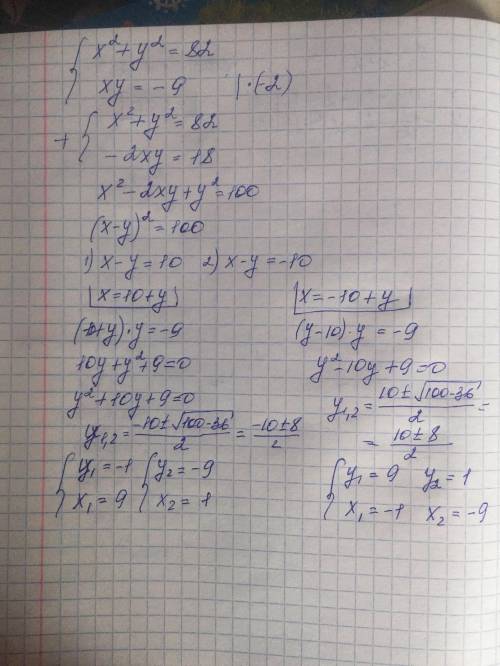 { x² + y² = 82
xy = -9 | · (-2)
+ { x² + y² = 82
-2xy = 18
x² - 2xy + y² = 100
(x-y)² = 100
1) x-y = 10 2) x-y = -10
|x = 10+y|
(10+y)·y = -9
10y + y² + 9 = 0
y² + 10y + 9 = 0
y₁,₂ = (-10 ± √100-36)/2 = (-10±8)/2
{ y₁ = -1 { y₂ = -9
x₁ = 9 x₂ = 1
|x = -10+y|
(y-10)·y = -9
y² - 10y + 9 = 0
y₁,₂ = (10 ± √100-36)/2 =
= (10±8)/2
{ y₁ = 9 y₂ = 1
x₁ = -1 x₂ = -9